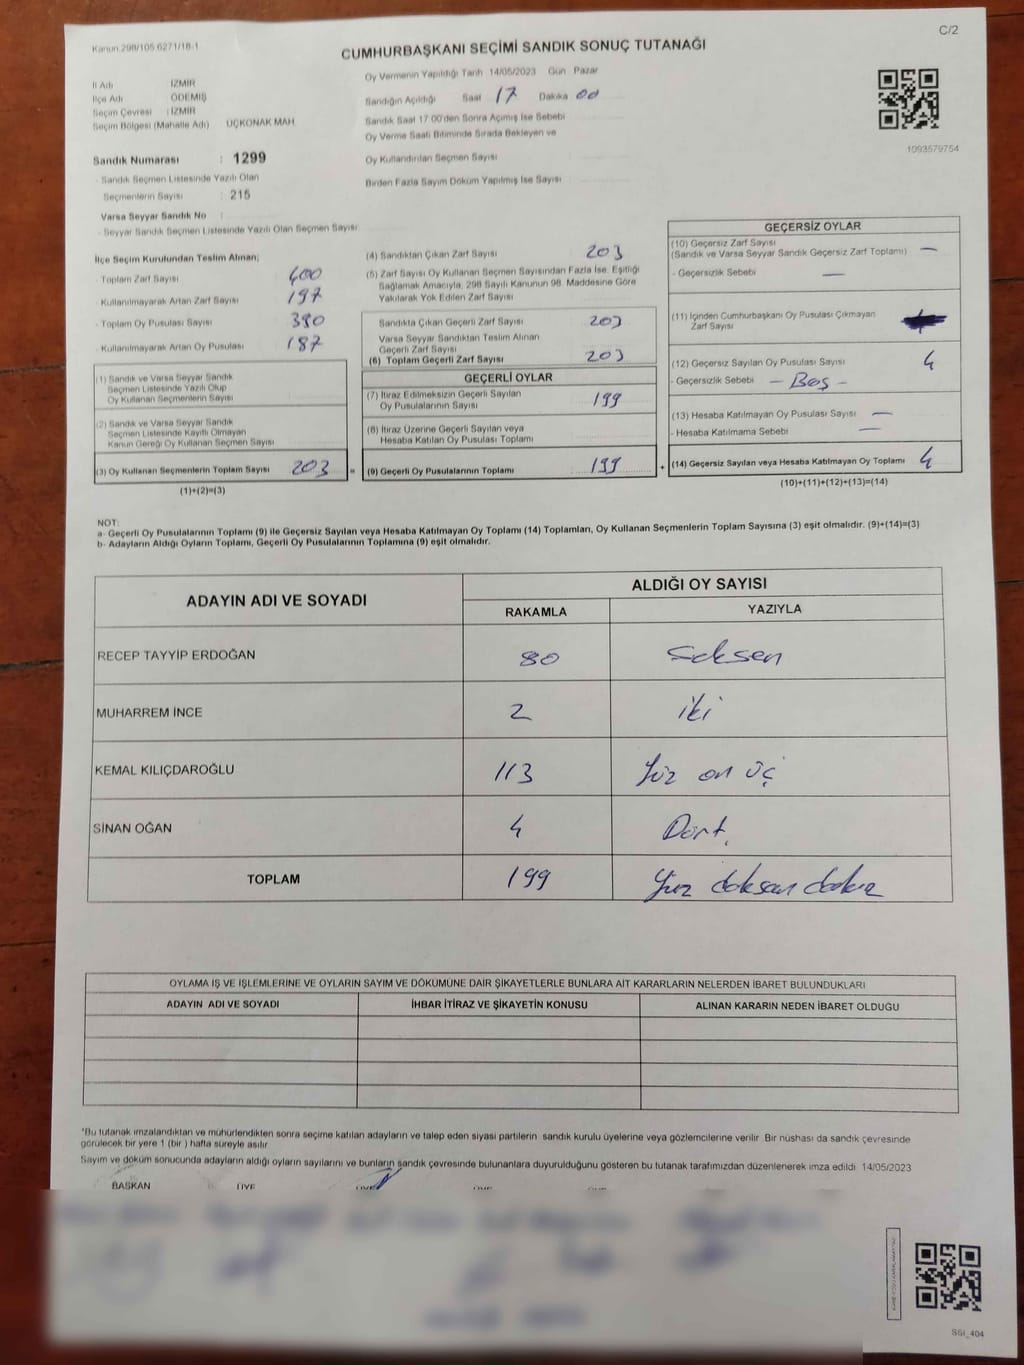 C/2
Kanun.298/105.6271/18-1
CUMHURBAŞKANI SEÇİMİ SANDIK SONUÇ TUTANAĞI
İl Adı : İZMİR
İlçe Adı : ÖDEMİŞ
Seçim Çevresi : İZMİR
Seçim Bölgesi (Mahalle Adı) : ÜÇKONAK MAH.
Oy Vermenin Yapıldığı Tarih 14/05/2023 Gün Pazar
Sandığın Açıldığı Saat 17 Dakika 00
Sandık Saat 17:00'den Sonra Açımış İse Sebebi
Oy Verme Saati Bitiminde Sırada Bekleyen ve
Oy Kullandırılan Seçmen Sayısı
Birden Fazla Sayım Döküm Yapılmış İse Sayısı
1093579754
Sandık Numarası : 1299
- Sandık Seçmen Listesinde Yazılı Olan
Seçmenlerin Sayısı : 215
Varsa Seyyar Sandık No :
- Seyyar Sandık Seçmen Listesinde Yazılı Olan Seçmen Sayısı
İlçe Seçim Kurulundan Teslim Alınan;
- Toplam Zarf Sayısı 400
- Kullanılmayarak Artan Zarf Sayısı 197
- Toplam Oy Pusulası Sayısı 390
- Kullanılmayarak Artan Oy Pusulası 187
(1) Sandık ve Varsa Seyyar Sandık
Seçmen Listesinde Yazılı Olup
Oy Kullanan Seçmenlerin Sayısı
(2) Sandık ve Varsa Seyyar Sandık
Seçmen Listesinde Kayıtlı Olmayan
Kanun Gereği Oy Kullanan Seçmen Sayısı
(3) Oy Kullanan Seçmenlerin Toplam Sayısı 203
(1)+(2)=(3)
(4) Sandıktan Çıkan Zarf Sayısı 203
(5) Zarf Sayısı Oy Kullanan Seçmen Sayısından Fazla İse, Eşitliği
Sağlamak Amacıyla, 298 Sayılı Kanunun 98. Maddesine Göre
Yakılarak Yok Edilen Zarf Sayısı
Sandıkta Çıkan Geçerli Zarf Sayısı 203
Varsa Seyyar Sandıktan Teslim Alınan
Geçerli Zarf Sayısı
(6) Toplam Geçerli Zarf Sayısı 203
GEÇERLİ OYLAR
(7) İtiraz Edilmeksizin Geçerli Sayılan
Oy Pusulalarının Sayısı 199
(8) İtiraz Üzerine Geçerli Sayılan veya
Hesaba Katılan Oy Pusulası Toplamı
= (9) Geçerli Oy Pusulalarının Toplamı 199
GEÇERSİZ OYLAR
(10) Geçersiz Zarf Sayısı
(Sandık ve Varsa Seyyar Sandık Geçersiz Zarf Toplamı) —
- Geçersizlik Sebebi —
(11) İçinden Cumhurbaşkanı Oy Pusulası Çıkmayan
Zarf Sayısı
(12) Geçersiz Sayılan Oy Pusulası Sayısı 4
- Geçersizlik Sebebi - Boş -
(13) Hesaba Katılmayan Oy Pusulası Sayısı —
- Hesaba Katılmama Sebebi —
+ (14) Geçersiz Sayılan veya Hesaba Katılmayan Oy Toplamı 4
(10)+(11)+(12)+(13)=(14)
NOT:
a- Geçerli Oy Pusulalarının Toplamı (9) ile Geçersiz Sayılan veya Hesaba Katılmayan Oy Toplamı (14) Toplamları, Oy Kullanan Seçmenlerin Toplam Sayısına (3) eşit olmalıdır. (9)+(14)=(3)
b- Adayların Aldığı Oyların Toplamı, Geçerli Oy Pusulalarının Toplamına (9) eşit olmalıdır.
ADAYIN ADI VE SOYADI
ALDIĞI OY SAYISI
RAKAMLA YAZIYLA
RECEP TAYYİP ERDOĞAN 80 Seksen
MUHARREM İNCE 2 iki
KEMAL KILIÇDAROĞLU 113 Yüz on üç
SİNAN OĞAN 4 Dört.
TOPLAM 199 Yüz doksan dokuz
OYLAMA İŞ VE İŞLEMLERİNE VE OYLARIN SAYIM VE DÖKÜMÜNE DAİR ŞİKAYETLERLE BUNLARA AİT KARARLARIN NELERDEN İBARET BULUNDUKLARI
ADAYIN ADI VE SOYADI İHBAR İTİRAZ VE ŞİKAYETİN KONUSU ALINAN KARARIN NEDEN İBARET OLDUĞU
*Bu tutanak imzalandıktan ve mühürlendikten sonra seçime katılan adayların ve talep eden siyasi partilerin sandık kurulu üyelerine veya gözlemcilerine verilir. Bir nüshası da sandık çevresinde
görülecek bir yere 1 (bir ) hafta süreyle asılır.
Sayım ve döküm sonucunda adayların aldığı oyların sayılarını ve bunların sandık çevresinde bulunanlara duyurulduğunu gösteren bu tutanak tarafımızdan düzenlenerek imza edildi. 14/05/2023
BAŞKAN ÜYE ÜYE ÜYE ÜYE
SSI_404